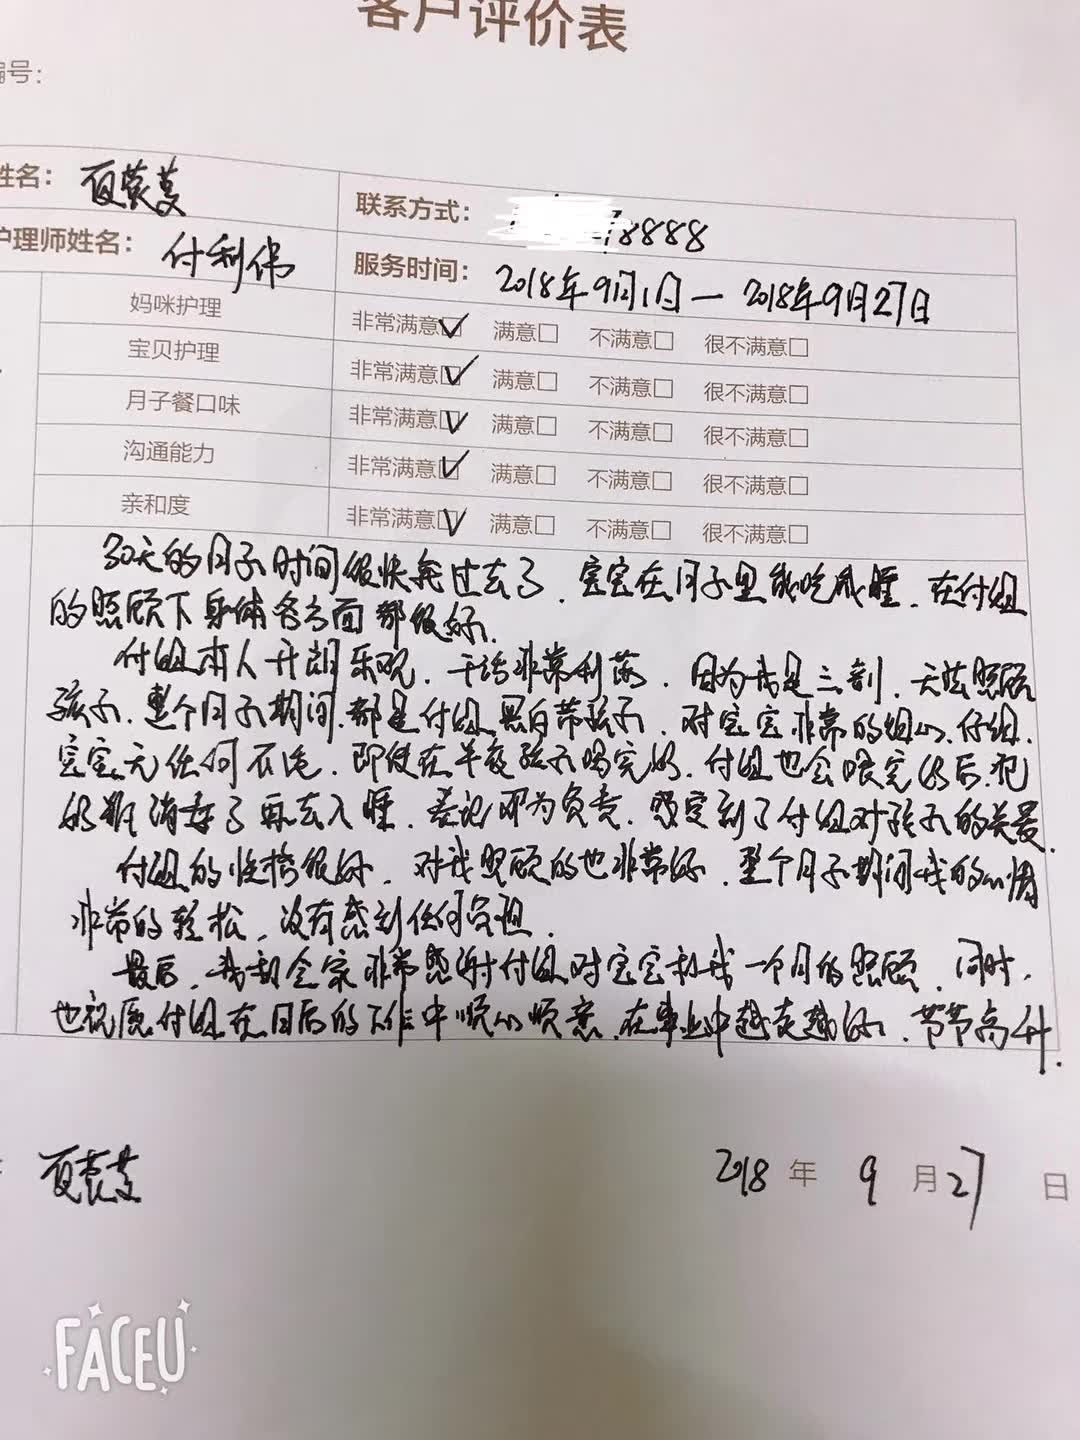 客户评价表
编号:
姓名:
联系方式: 8888
护理师姓名: 付利伟
服务时间: 2018年9月1日—2018年9月27日
妈咪护理 非常满意☑ 满意□ 不满意□ 很不满意□
宝贝护理 非常满意☑ 满意□ 不满意□ 很不满意□
月子餐口味 非常满意☑ 满意□ 不满意□ 很不满意□
沟通能力 非常满意☑ 满意□ 不满意□ 很不满意□
亲和度 非常满意☑ 满意□ 不满意□ 很不满意□
30天的月子时间很快就过去了.宝宝在月子里能吃能睡.在付姐
的照顾下身体各方面都很好.
付姐本人开朗乐观.干活非常利落.因为我是三剖.无法照顾
孩子.整个月子期间.都是付姐黑白带孩子.对宝宝非常的细心.仔细.
宝宝无任何不适.即使在半夜孩子喝完奶.付姐也会喂完奶后.把
奶瓶消毒了再去入睡.负责.感受到了付姐对孩子的关爱.
付姐的性格很好.对我照顾的也非常好.整个月子期间我的心情
非常的轻松.没有感到任何负担.
最后.我和全家非常感谢付姐对宝宝和我一个月的照顾.同时.
也祝愿付姐在日后的工作中顺心顺意.在事业中越走越好.节节高升.
2018 年 9 月 27 日
FACEU